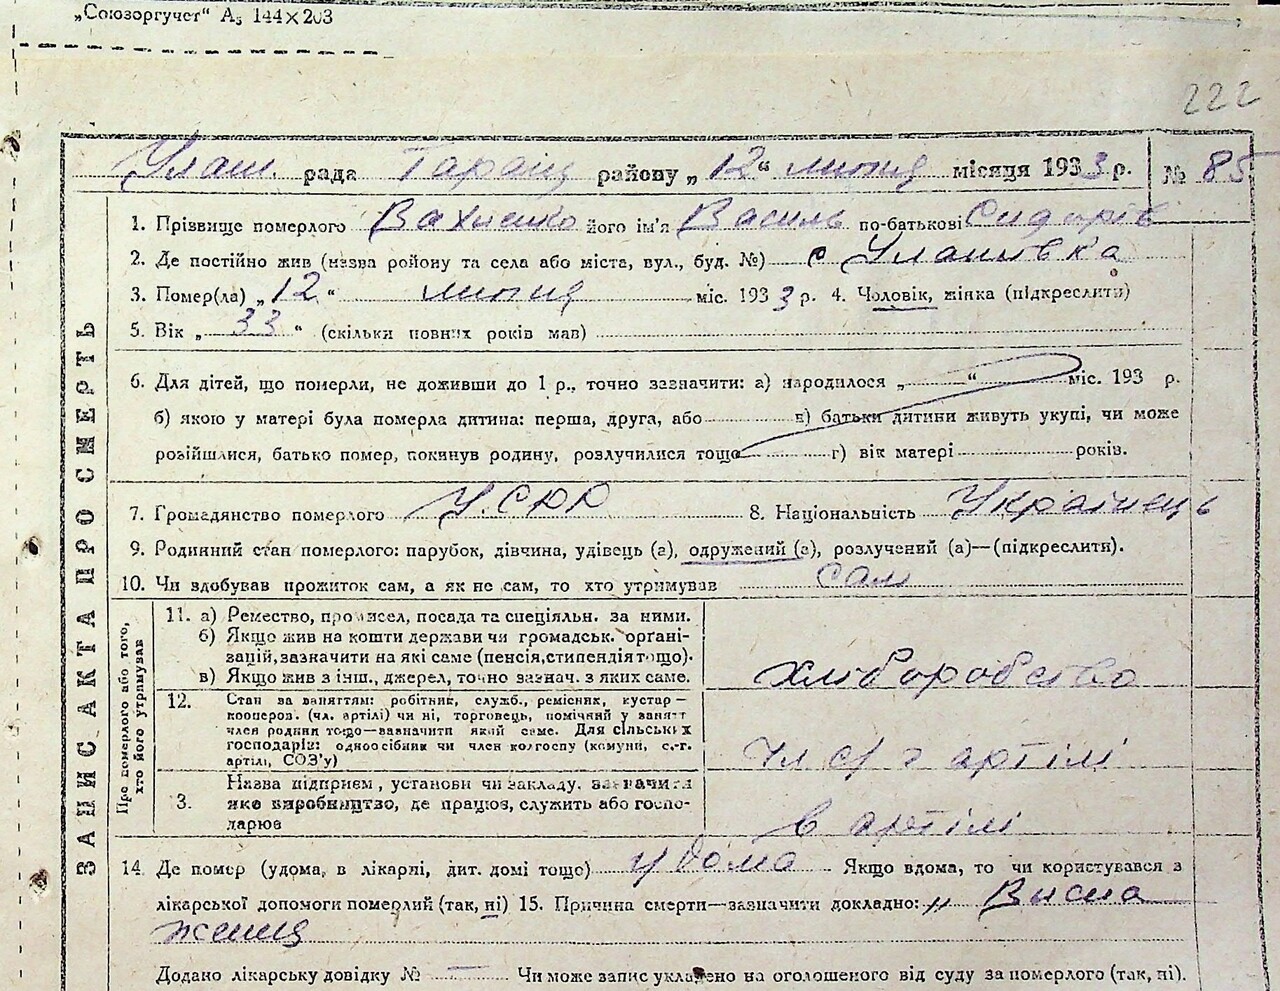 „Союзоргучет“ А₃ 144×203
222
Улаш. рада Таращ району „12“ липня місяця 1933 р. № 85
1. Прізвище померлого Вахненко його ім'я Василь по-батькові Сидорів
2. Де постійно жив (назва ройону та села або міста, вул., буд. №) с Улашівка
3. Помер(ла) „12“ липня міс. 1933 р. 4. Чоловік, жінка (підкреслити)
5. Вік „33“ (скільки повних років мав)
6. Для дітей, що померли, не доживши до 1 р., точно зазначити: а) народилося „ “ міс. 193 р.
б) якою у матері була померла дитина: перша, друга, або в) батьки дитини живуть укупі, чи може
розійшлися, батько помер, покинув родину, розлучилися тощо г) вік матері років.
7. Громадянство померлого У.СРР 8. Національність Українець
9. Родинний стан померлого: парубок, дівчина, удівець (а), одружений (а), розлучений (а)—(підкреслити).
10. Чи здобував прожиток сам, а як не сам, то хто утримував сам
ЗАПИС АКТА ПРО СМЕРТЬ
Про померлого або того,
хто його утримував
11. а) Ремество, промисел, посада та спеціяльн. за ними.
б) Якщо жив на кошти держави чи громадськ. орґані-
зацій, зазначити на які саме (пенсія, стипендія тощо).
в) Якщо жив з інш., джерел, точно зазнач. з яких саме.
хліборобство
12. Стан за заняттям: робітник, служб., ремісник, кустар—
кооперов. (чл. артілі) чи ні, торговець, помічний у занятт
член родини тощо—зазначити який саме. Для сільських
господарів: одноосібник чи член колгоспу (комуни, с.-г.
артілі, СОЗ'у)
Чл с/г артілі
3. Назва підприєм, установи чи закладу. зазначити
яке виробництво, де працює, служить або госпо-
дарює
в артілі
14. Де помер (удома, в лікарні, дит. домі тощо) удома Якщо вдома, то чи користувався з
лікарської допомоги померлий (так, ні) 15. Причина смерти—зазначити докладно: „ Висна
ження
Додано лікарську довідку № — Чи може запис укладено на оголошеного від суду за померлого (так, ні).